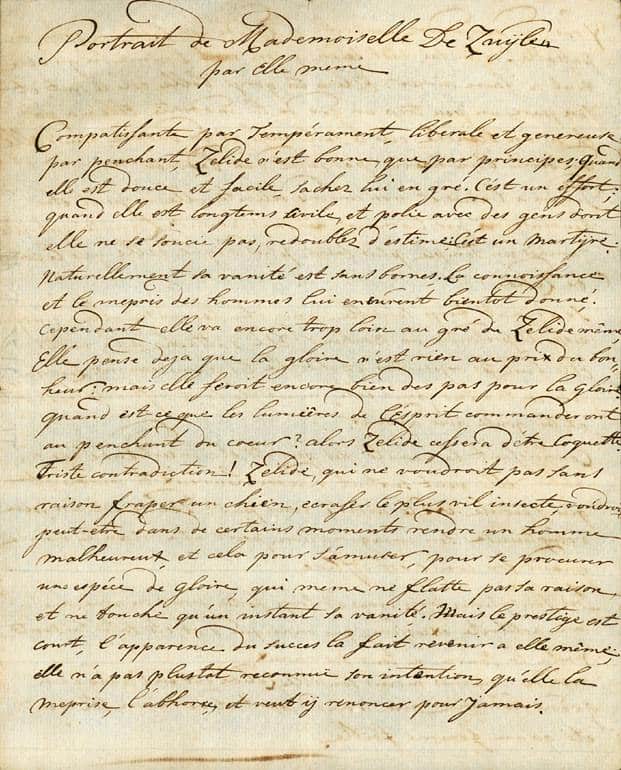 Portrait de Mademoiselle De Zuÿlen
par Elle meme
Compatissante par Tempérament, liberale et genereuse
par penchant, Zélide n'est bonne que par principes. quand
elle est douce et facile, sachez lui en gré. C'est un effort;
quand elle est longtems civile, et polie avec des gens dont
elle ne se soucie pas, redoublez d'estime: C'est un martÿre.
Naturellement sa vanité est sans bornes. Le connoissance
et le mepris des hommes lui en eurent bientot donné.
Cependant elle va encore trop loin au gré de Zélide même,
Elle pense deja que la gloire n'est rien au prix du bon=
heur: mais elle feroit encore bien des pas pour la Gloire.
quand est ce que les lumiëres de l'ésprit commanderont
au penchant du coeur? alors Zélide cessera d'être Coquette.
Triste contradiction! Zélide, qui ne voudroit pas sans
raison fraper un chien, ecraser le plus vil insecte, voudroit
peut-être dans de certains moments rendre un homme
malheureux, et cela pour s'amuser, pour se procurer
une espéce de gloire, qui meme ne flatte pas sa raison
et ne touche qu'un instant sa vanité. Mais le prestige est
court, l'apparence du succes la fait revenir a elle même,
elle n'a pas plustot reconnue son intention, qu'elle la
meprise, l'abhorre, et veut ÿ renoncer pour Jamais.